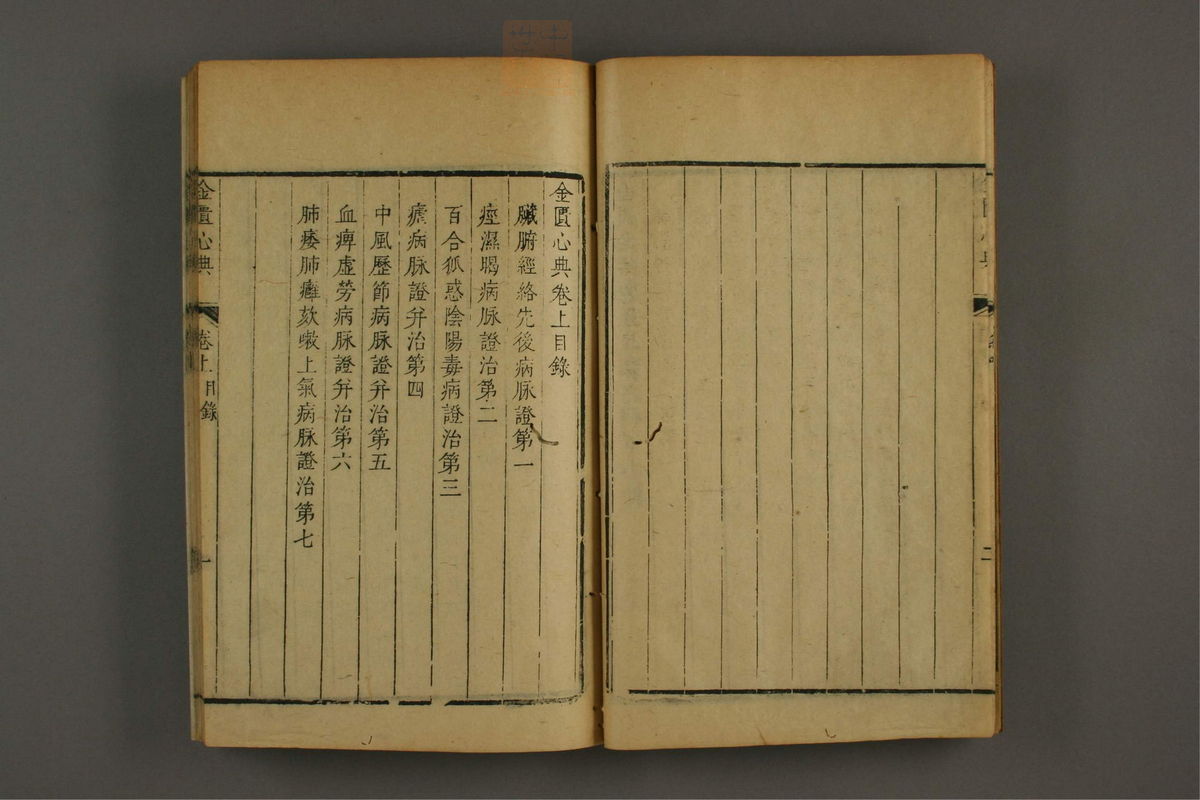 二
金匱心典卷上目錄
臟腑經絡先後病脉證第一
痙濕暍病脉證治第二
百合狐惑陰陽毒病證治第三
瘧病脉證并治第四
中風歷節病脉證并治第五
血痺虛勞病脉證并治第六
肺痿肺癰欬嗽上氣病脉證治第七
金匱心典
卷上目錄
一